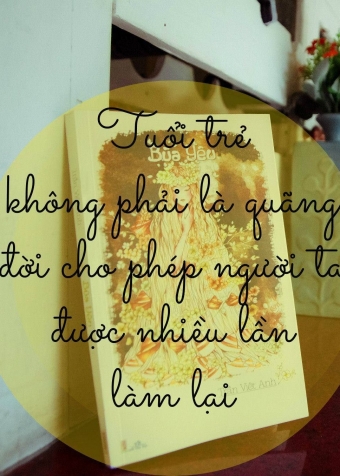 Tuổi trẻ
Bùa Yêu
không phải là quãng
đời cho phép người ta
được nhiều lần
làm lại
Việt Anh